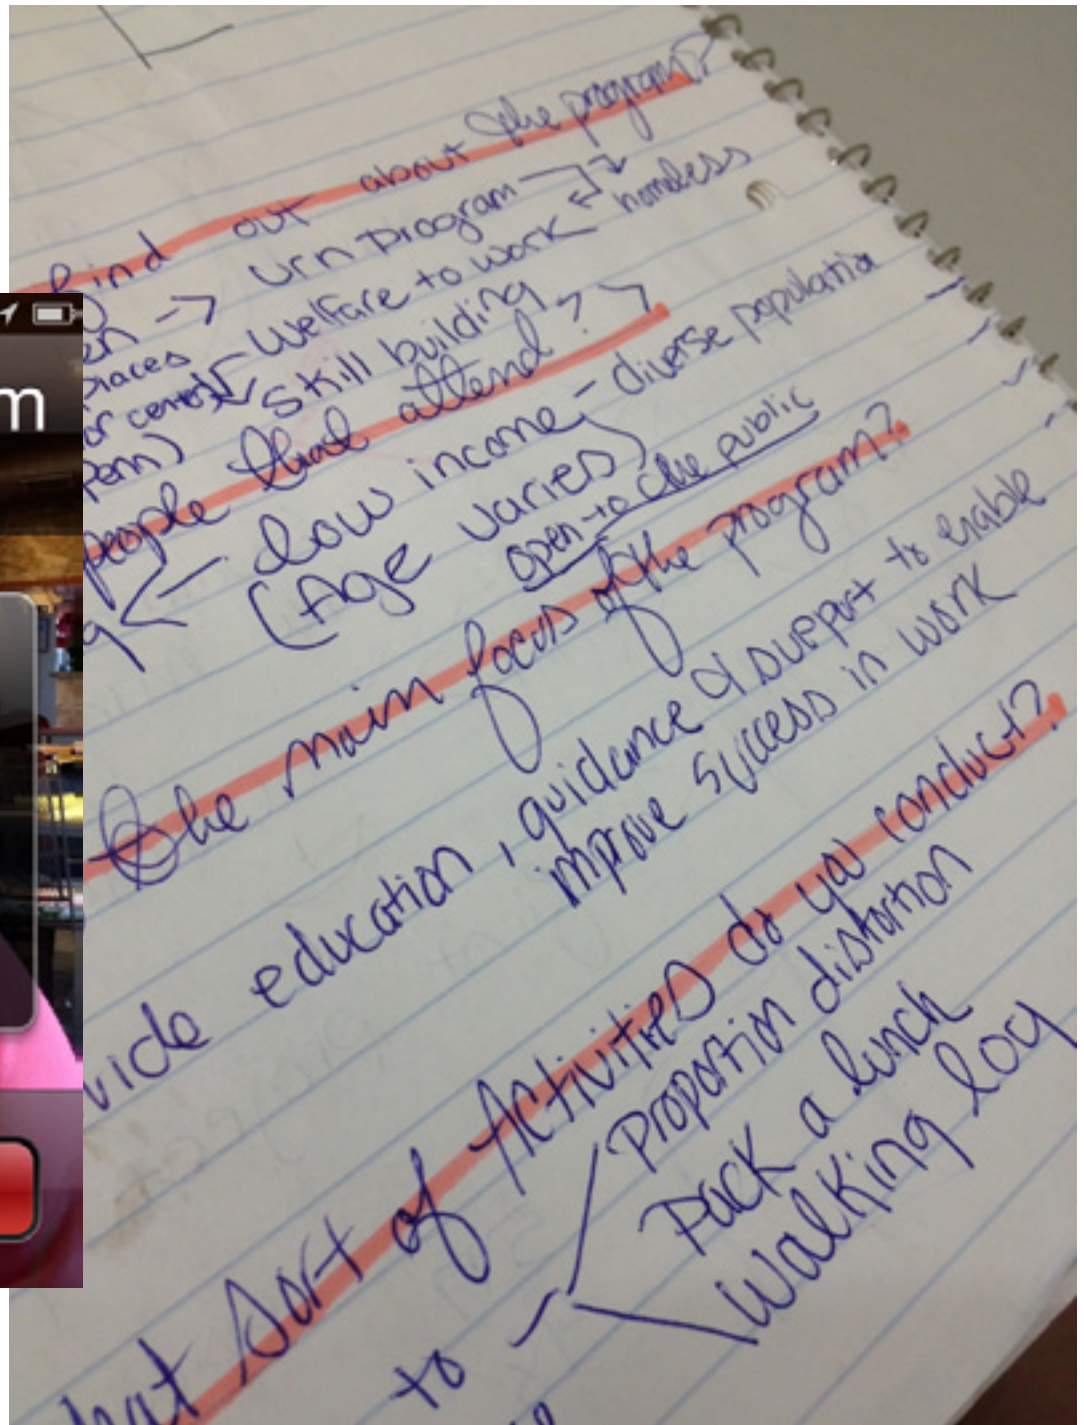 m
find out about the program?
en -> urn program -> homeless
places - welfare to work
or center) skill building
perm)
people that attend?
<- low income - diverse population
(Age varies)
open to the public
the main focus of the program?
vide education, guidance & support to enable
improve success in work
hat sort of Activities do you conduct?
Proportion distortion
to - Pack a lunch
walking log